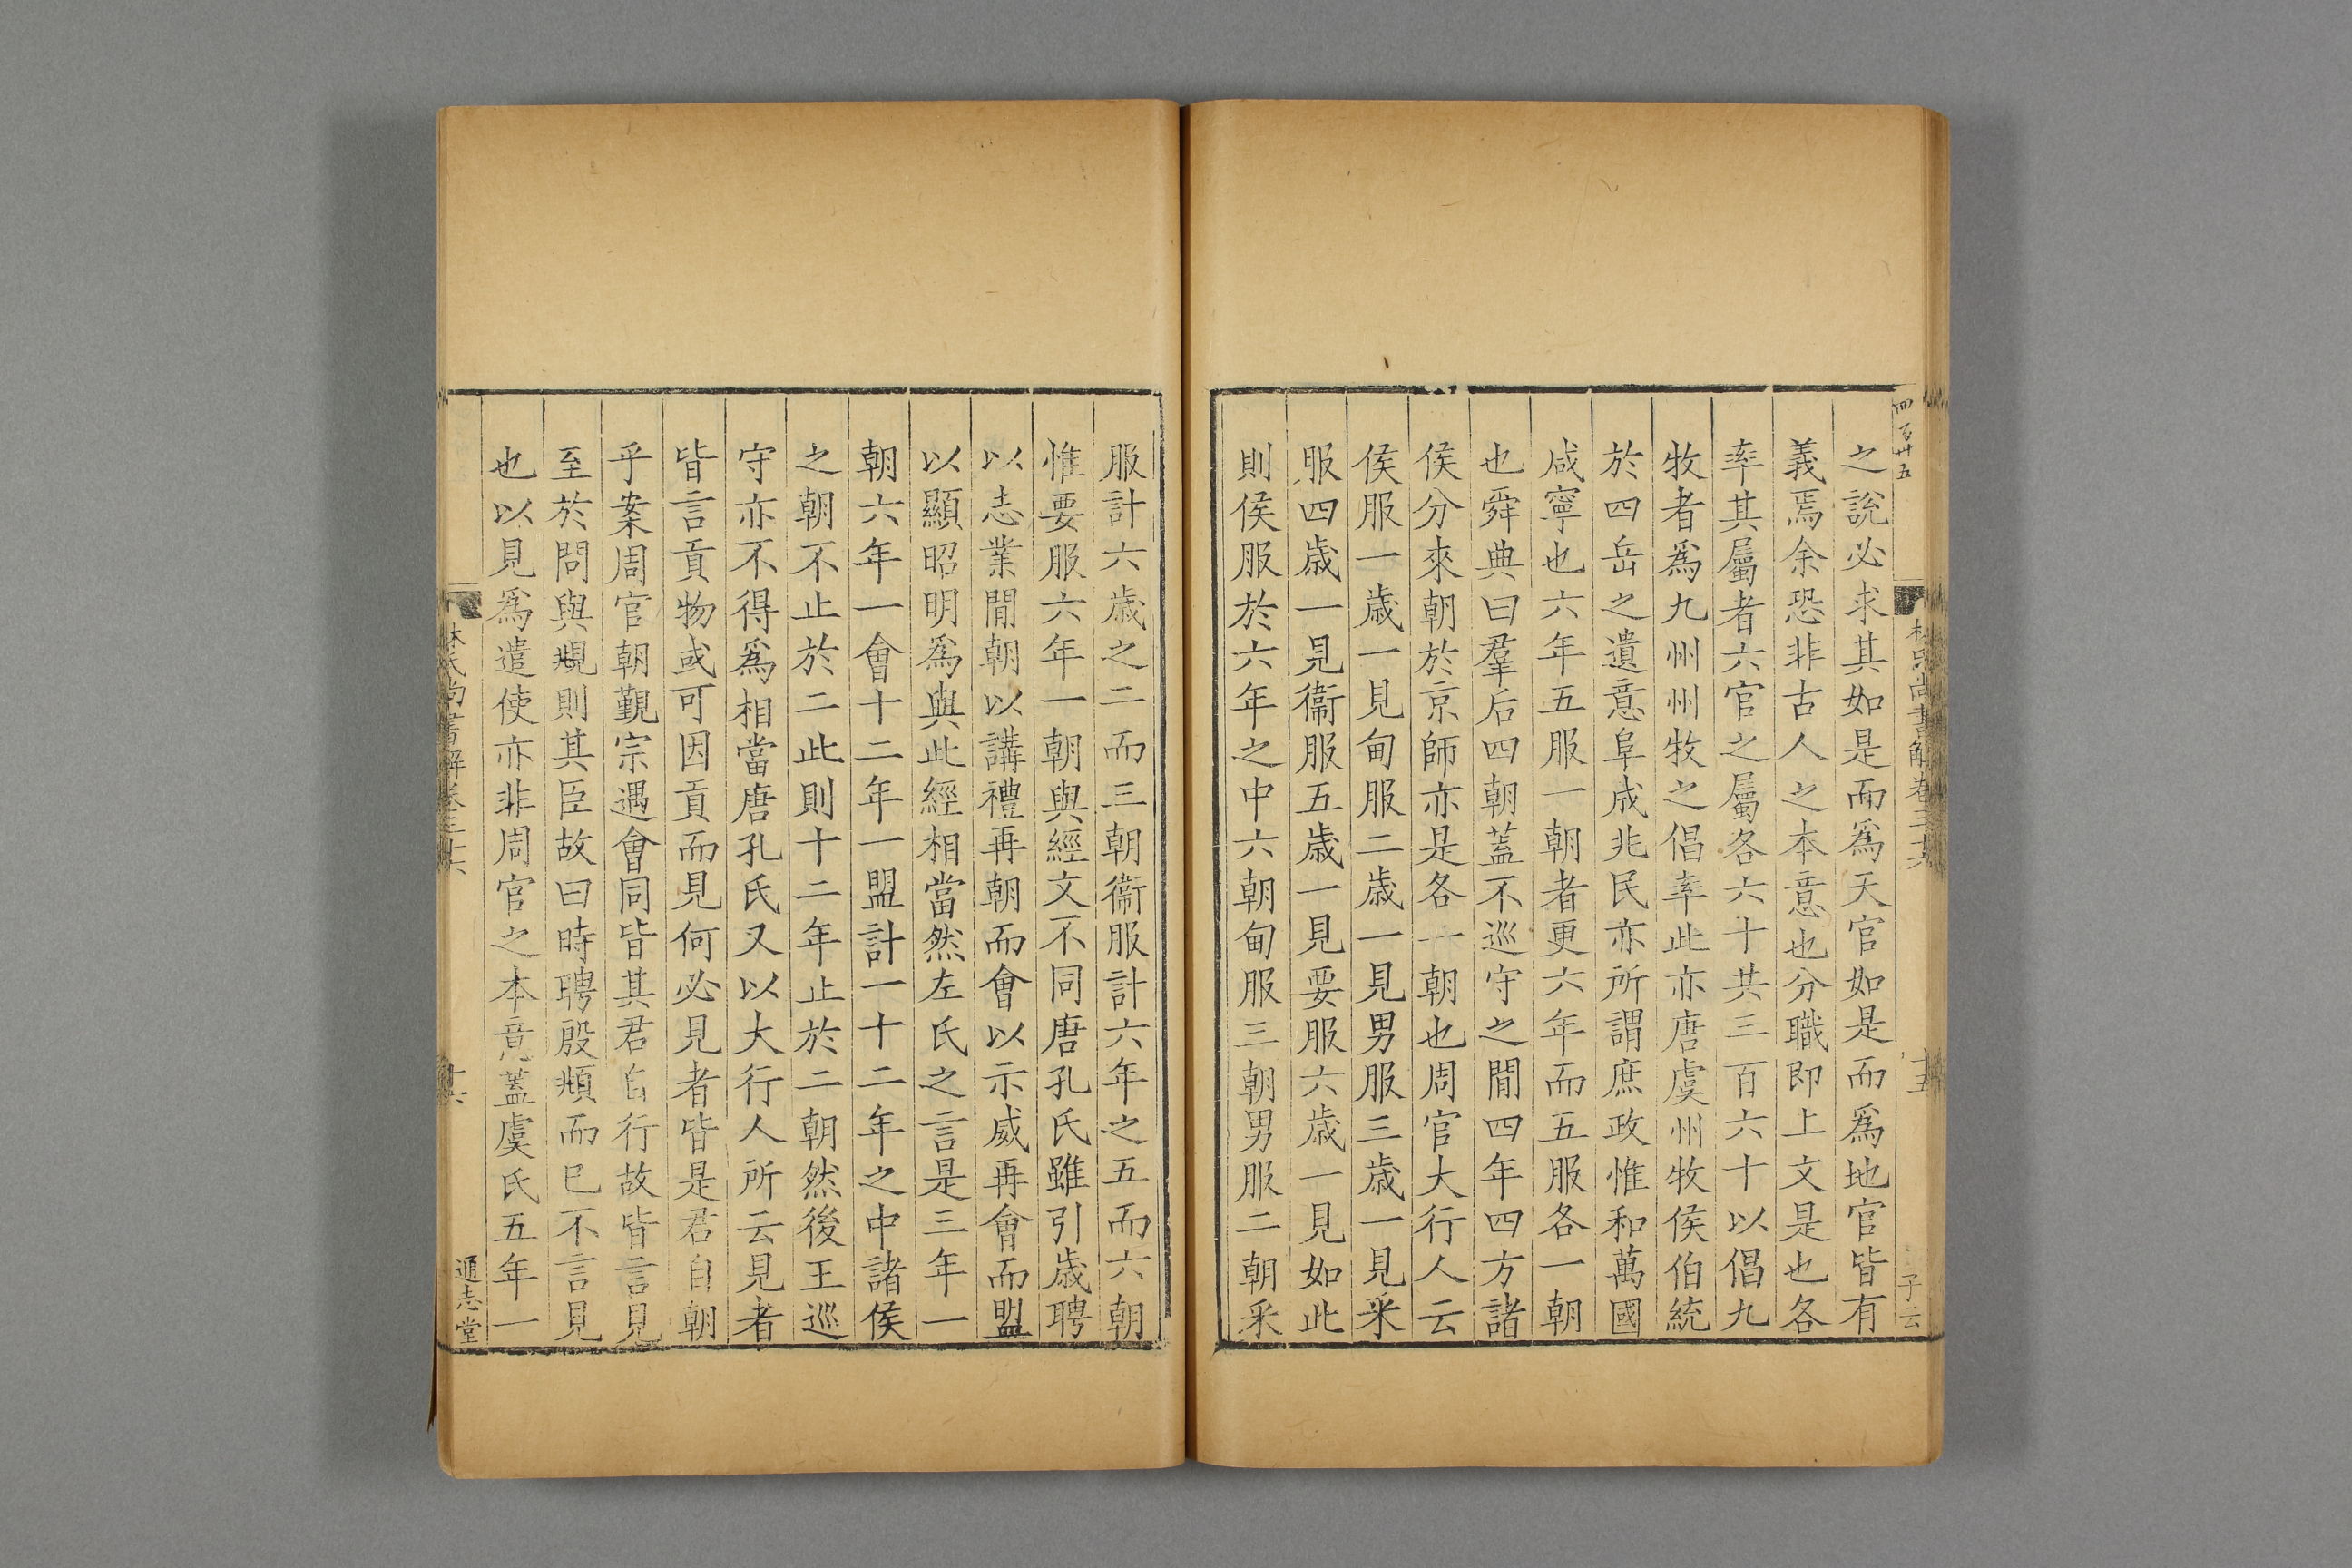 四百廿五
林氏尚書解卷三十六
十五
子云
之說必求其如是而爲天官如是而爲地官皆有
義焉余恐非古人之本意也分職即上文是也各
率其屬者六官之屬各六十共三百六十以倡九
牧者爲九州州牧之倡率此亦唐虞州牧侯伯統
於四岳之遺意阜成兆民亦所謂庶政惟和萬國
咸寧也六年五服一朝者更六年而五服各一朝
也舜典曰羣后四朝蓋不巡守之間四年四方諸
侯分來朝於京師亦是各一朝也周官大行人云
侯服一歲一見甸服二歲一見男服三歲一見采
服四歲一見衞服五歲一見要服六歲一見如此
則侯服於六年之中六朝甸服三朝男服二朝采
服計六歲之二而三朝衞服計六年之五而六朝
惟要服六年一朝與經文不同唐孔氏雖引歲聘
以志業間朝以講禮再朝而會以示威再會而盟
以顯昭明爲與此經相當然左氏之言是三年一
朝六年一會十二年一盟計一十二年之中諸侯
之朝不止於二此則十二年止於二朝然後王巡
守亦不得爲相當唐孔氏又以大行人所云見者
皆言貢物或可因貢而見何必見者皆是君自朝
乎案周官朝覲宗遇會同皆其君自行故皆言見
至於問與覜則其臣故曰時聘殷頫而已不言見
也以見爲遣使亦非周官之本意蓋虞氏五年一
林氏尚書解卷三十六
十六
通志堂